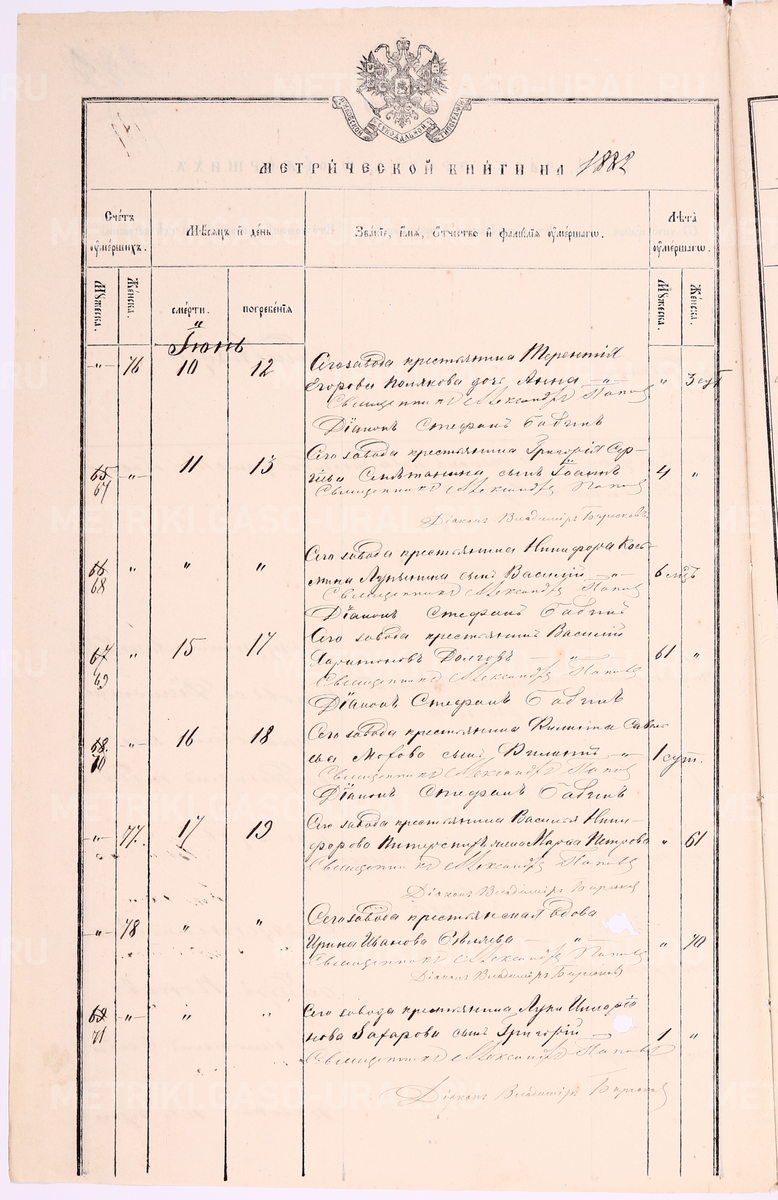 МОСКОВСКОЙ СѴНОДАЛЬНОЙ ТИПОГРАФІИ
МЕТРИ́ЧЕСКОЙ КНИ́ГИ НА 1882
Счетъ ѹмершихъ.
Мѣсяцъ и день
Званіе, имя, отчество и фамилія ѹмершагѡ.
Лѣта ѹмершагѡ.
Мꙋжеска.
Женска.
смерти.
погребенія
Мꙋжеска.
Женска.
Іюнь
" 76 10 12 Сего завода крестьянина Терентія
Егорова Полякова дочь Анна " " 3 сут
Священникъ Александръ Попов
Діаконъ Стефанъ Бабинъ
65 67 " 11 13 Сего завода крестьянина Григорія Сер-
гѣева сынъ Іоаннъ 4 "
Священникъ Александръ Попов
Діаконъ Владиміръ
66 68 " " " Сего завода крестьянина Никифора Кось-
мина Лупынина сынъ Василій " 6 мцъ
Священникъ Александръ Попов
Діаконъ Стефанъ Бабинъ
67 69 " 15 17 Сего завода крестьянинъ Василій
Харитоновъ Долговъ " 61 "
Священникъ Александръ Попов
Діаконъ Стефанъ Бабинъ
68 70 " 16 18 Сего завода крестьянина Савель-
ева Мохова сынъ " 1 сут.
Священникъ Александръ Попов
Діаконъ Стефанъ Бабинъ
" 77. 17 19 Сего завода крестьянина Василія Ники-
форова жена Марѳа Петрова " 61
Священникъ Александръ Попов
Діаконъ Владиміръ
" 78 " " Сего завода крестьянская вдова
Ирина Иванова Бѣляева " " 70
Священникъ Александръ Попов
Діаконъ Владиміръ
69 71 " " " Сего завода крестьянина Луки Илларіо
нова Захарова сынъ Григорій 1 "
Священникъ Александръ Попов
Діаконъ Владиміръ